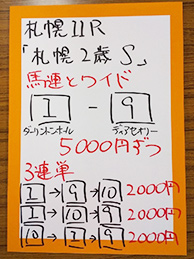 札幌11R
「札幌2歳S」
馬連とワイド
1 - 9
ダーリントンホール ディアセオリー
5000円ずつ
3連単
1→9→10 2000円
1→10→9 2000円
10→1→9 2000円